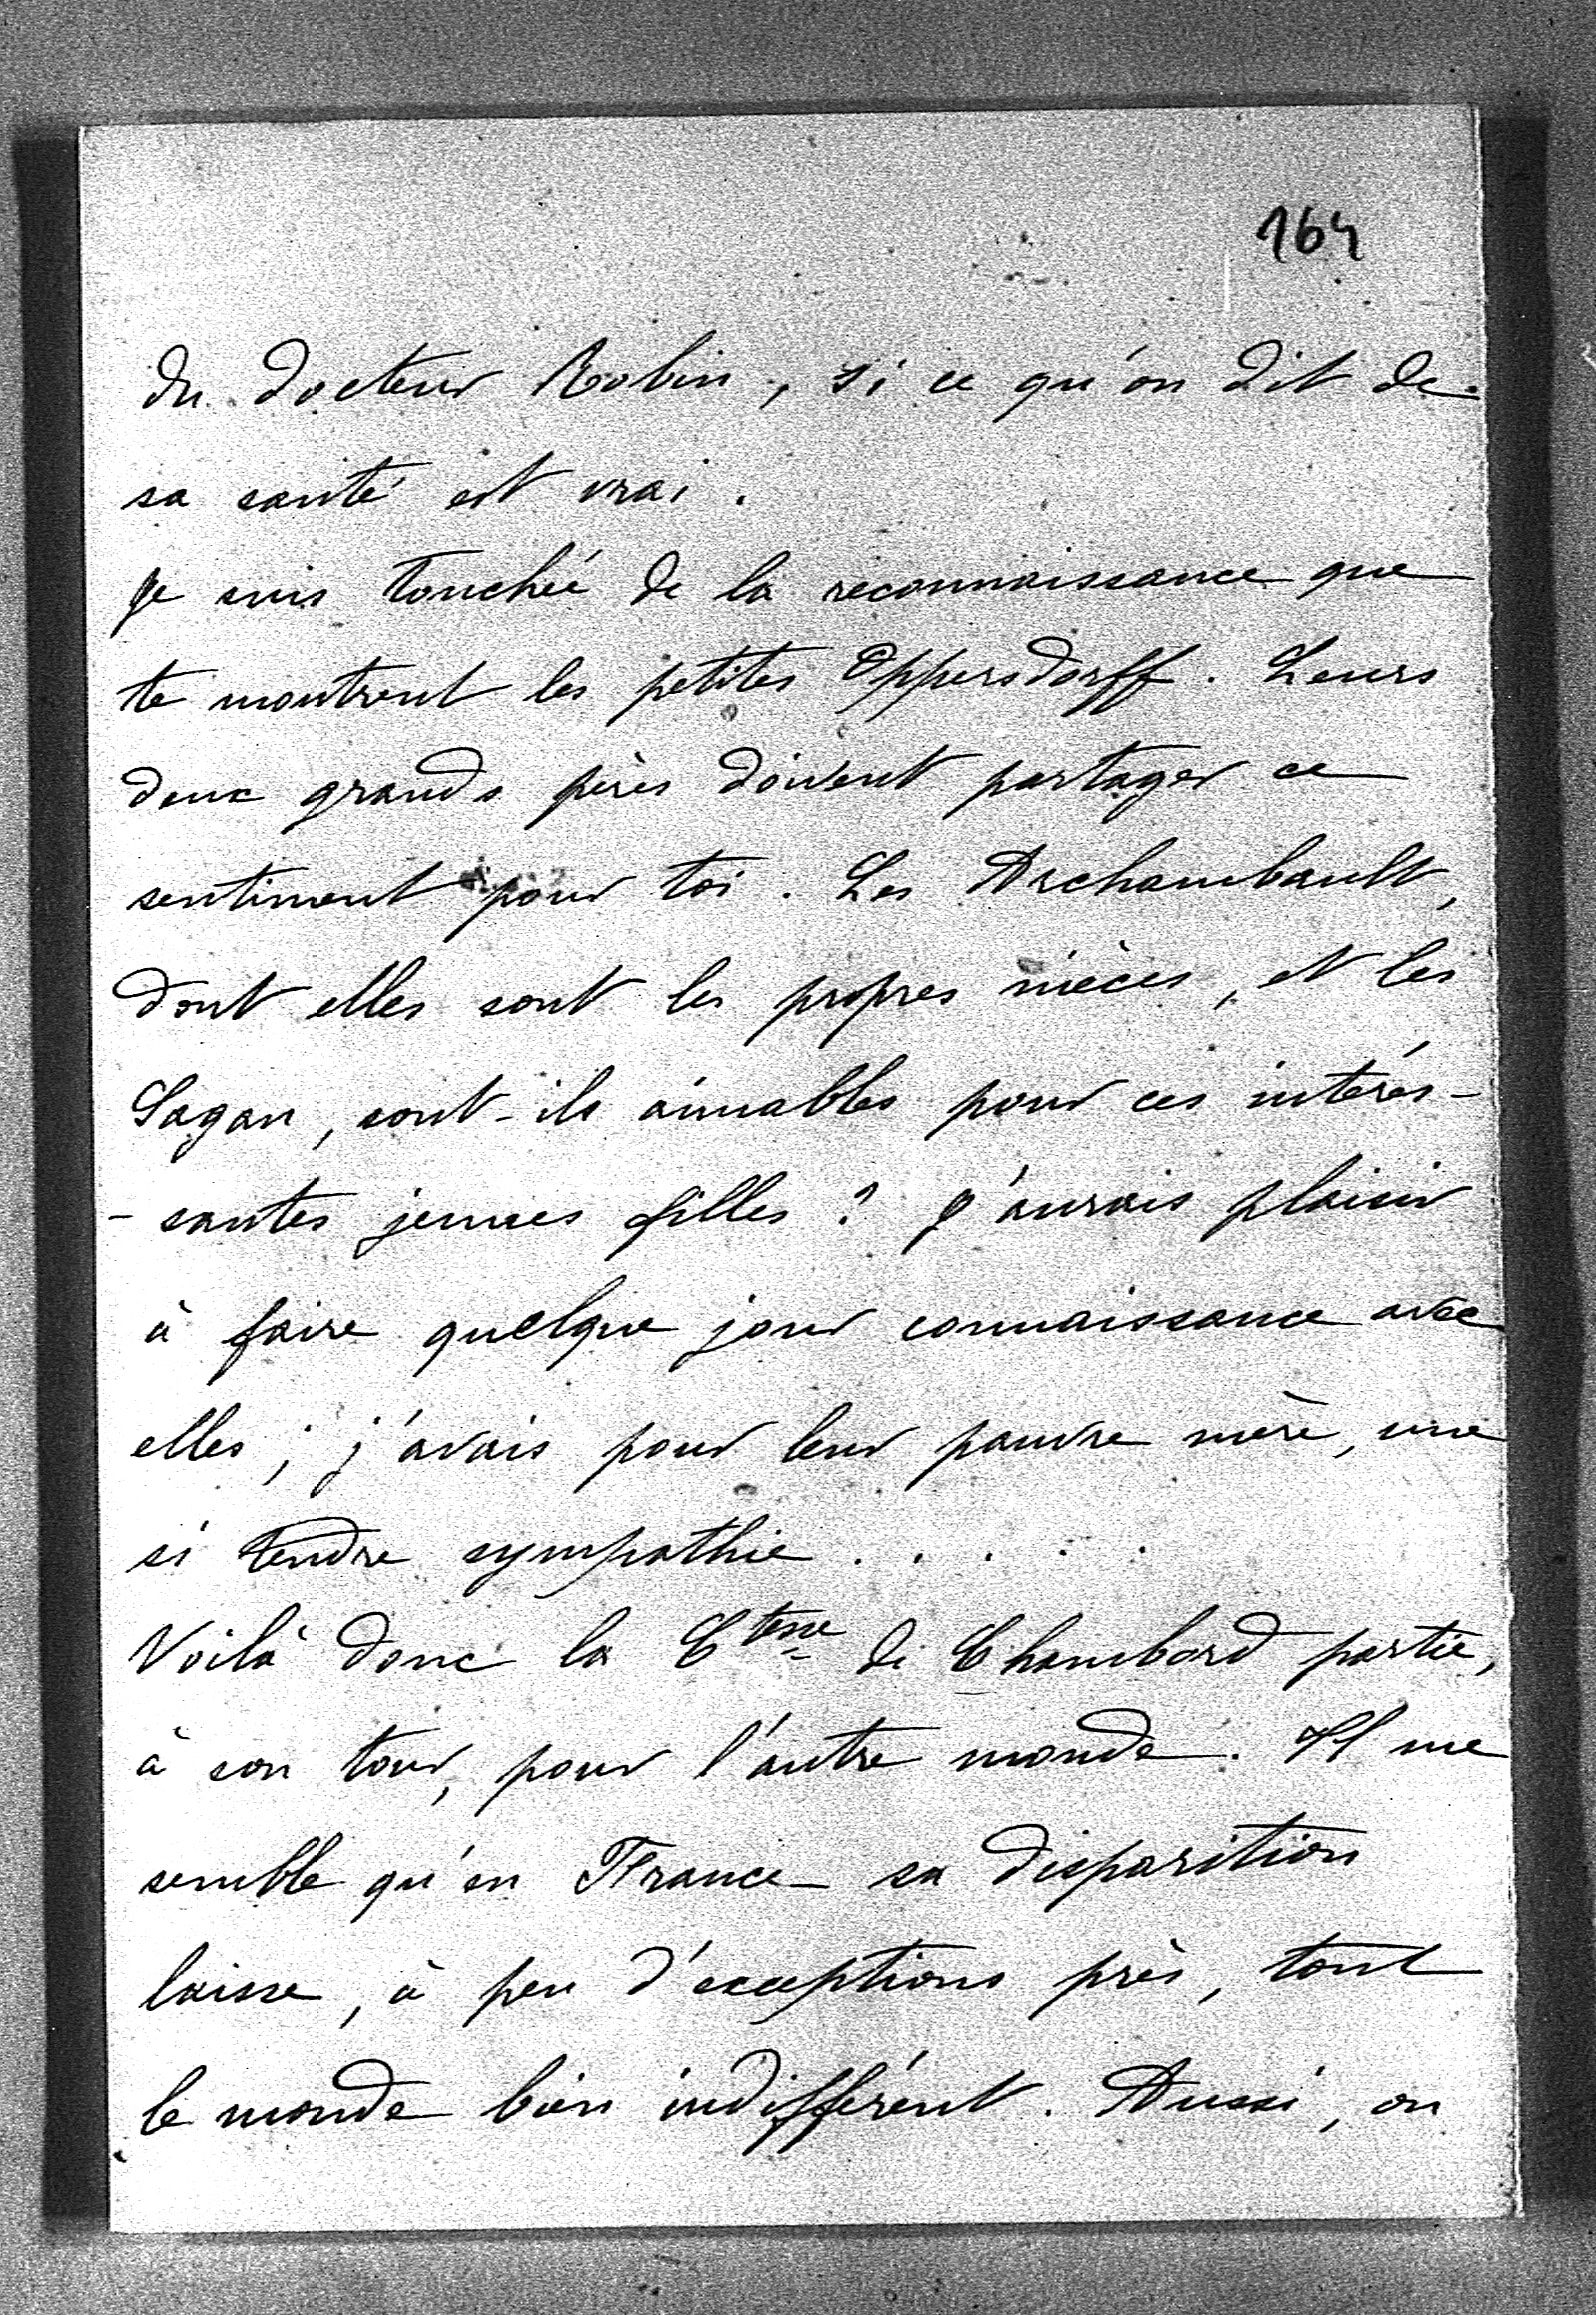 164
du docteur Robin, si ce qu'on dit de
sa santé est vrai.
Je suis touchée de la reconnaissance que
te montrent les petites Oppersdorff. Leurs
deux grands pères doivent partager ce
sentiment pour toi. Les Archambault,
dont elles sont les propres nièces, et les
Sagan, sont-ils aimables pour ces intéres-
-santes jeunes filles ? J'aurais plaisir
à faire quelque jour connaissance avec
elles ; j'avais pour leur pauvre mère, une
si tendre sympathie . . . . .
Voilà donc la Ctesse de Chambord partie,
à son tour, pour l'autre monde. Il me
semble qu'en France sa disparition
laisse, à peu d'exceptions près, tout
le monde bien indifférent. Aussi, on